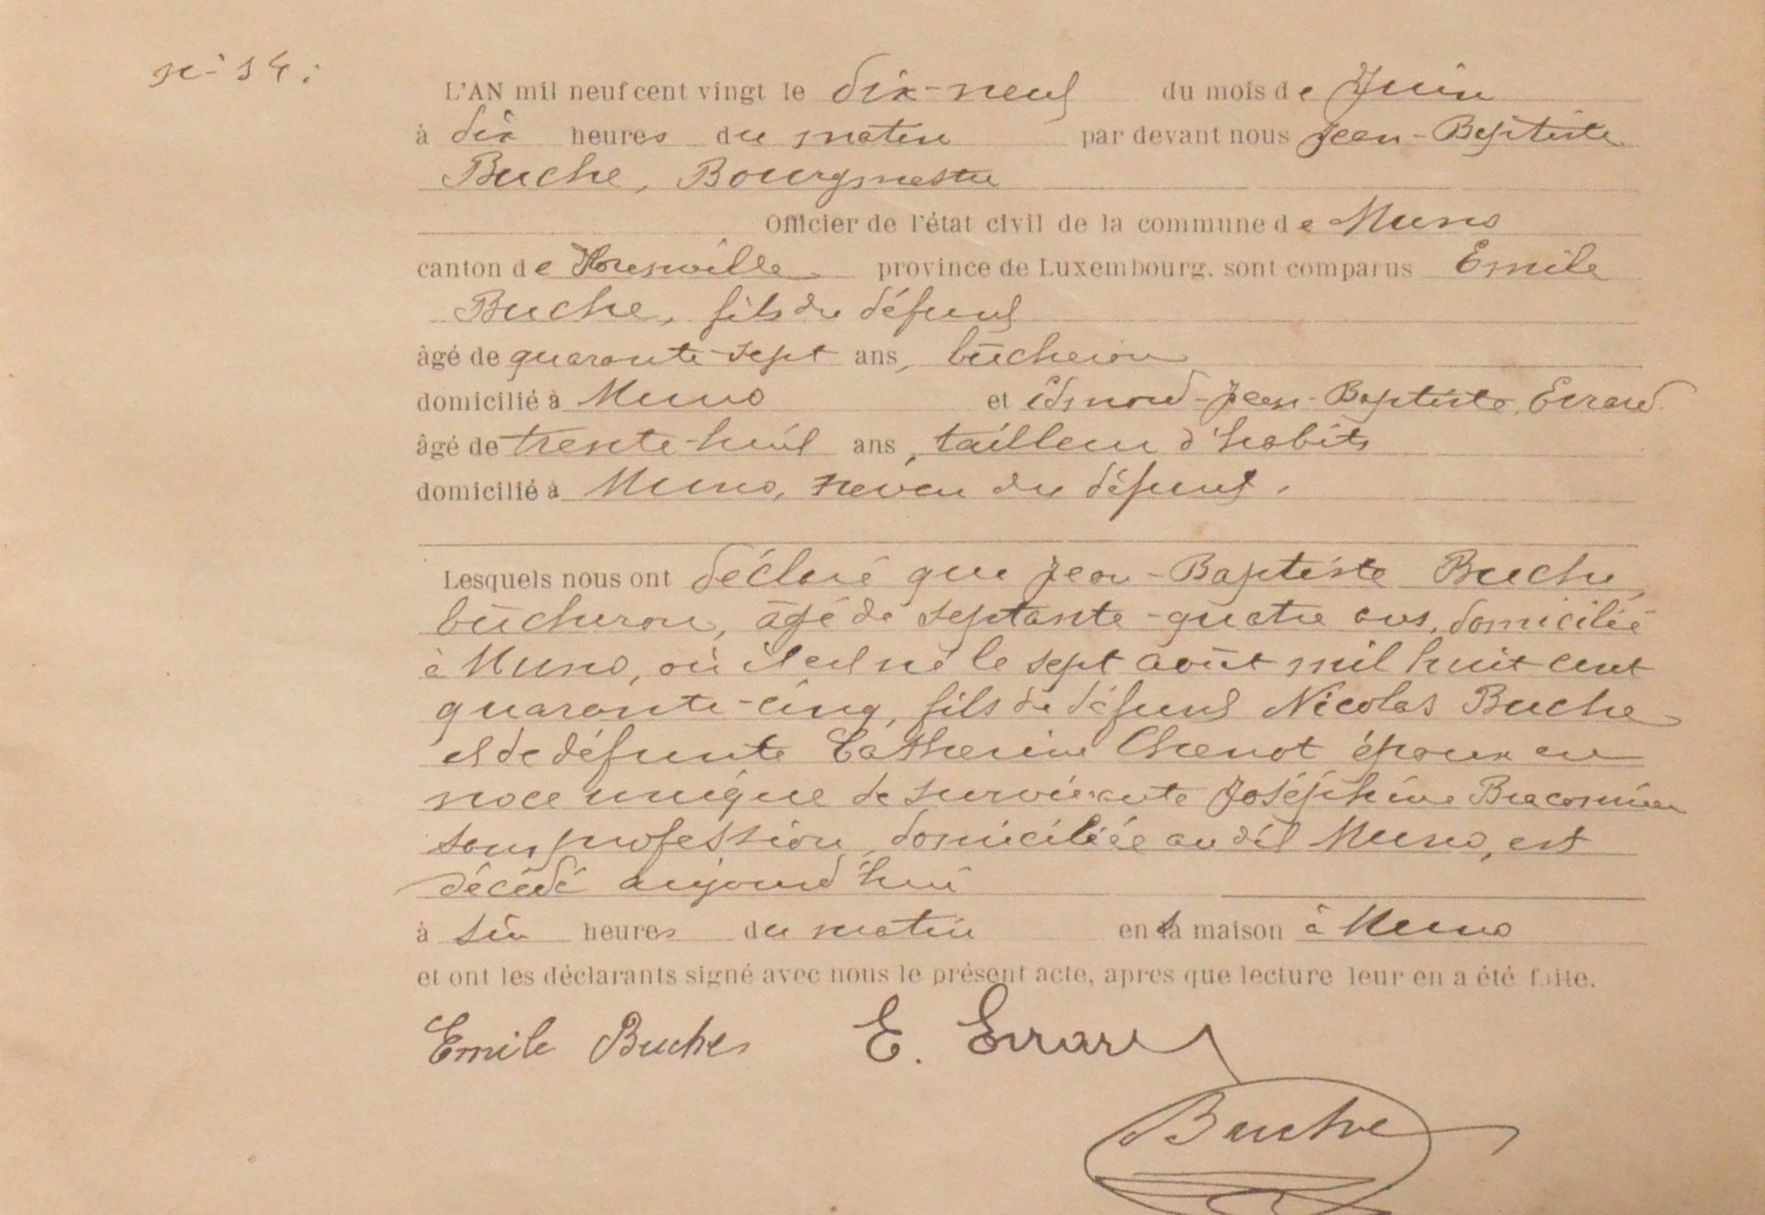 n° 14.
L'AN mil neuf cent vingt le dix-neuf du mois de Juin
à dix heures du matin par devant nous Jean-Baptiste
Buche, Bourgmestre
Officier de l'état civil de la commune de Muno
canton de Florenville province de Luxembourg, sont comparus Emile
Buche, fils du défunt
âgé de quarante-sept ans, bûcheron
domicilié à Muno et Edmond-Jean-Baptiste Errard
âgé de trente-huit ans, tailleur d'habits
domicilié à Muno, neveu du défunt.
Lesquels nous ont déclaré que Jean-Baptiste Buche,
bûcheron, âgé de septante-quatre ans, domicilié
à Muno, où il est né le sept août mil huit cent
quarante-cinq, fils de défunt Nicolas Buche
et de défunte Catherine Chenot époux en
noce unique de survivante Joséphine Braconnier
sans profession, domiciliée au dit Muno, est
décédé aujourd'hui
à six heures du matin en sa maison à Muno
et ont les déclarants signé avec nous le présent acte, après que lecture leur en a été faite.
Emile Buche E. Errard
Buche